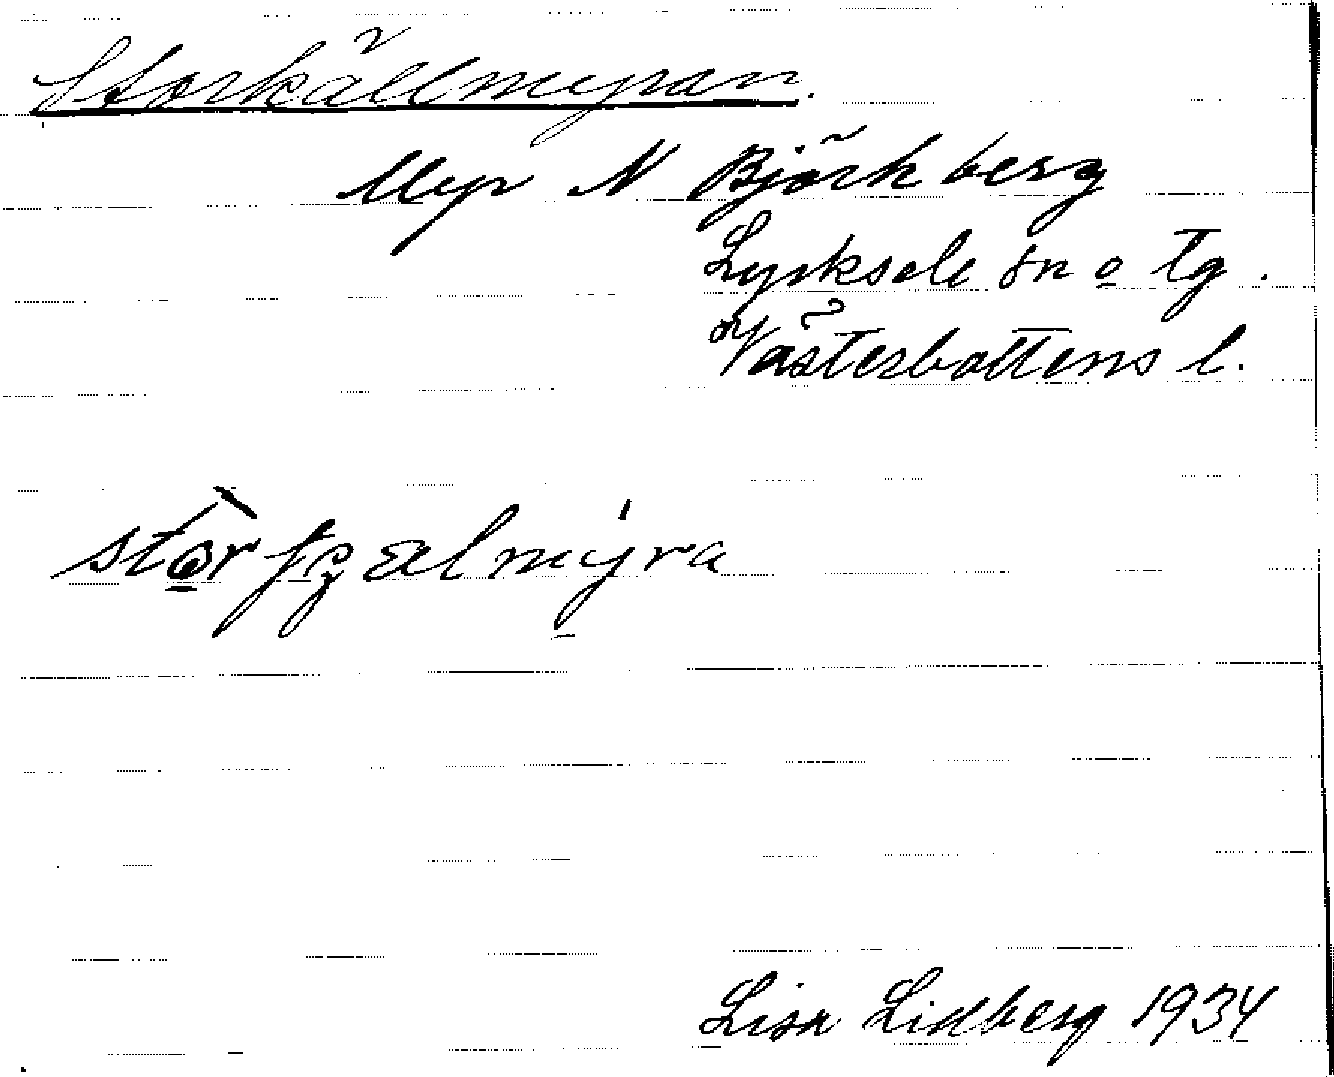 Storkällmyran.
Myr N Björkberg
Lycksele sn o tg.
Västerbottens l.
Lisa Lidberg 1934